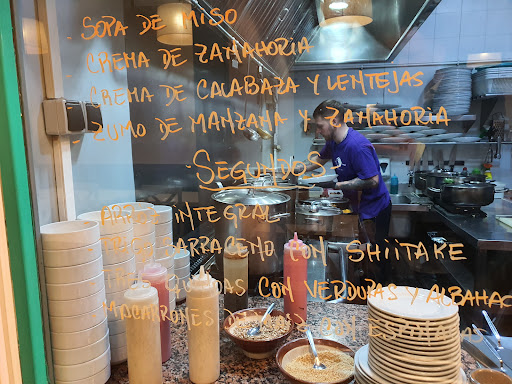 - SOPA DE MISO
- CREMA DE ZANAHORIA
- CREMA DE CALABAZA Y LENTEJAS
- ZUMO DE MANZANA Y ZANAHORIA
- SEGUNDOS -
ARROZ INTEGRAL
TRIGO SARRACENO CON SHIITAKE
CON VERDURAS Y ALBAHAC
MACARRONES CON ESPINACAS